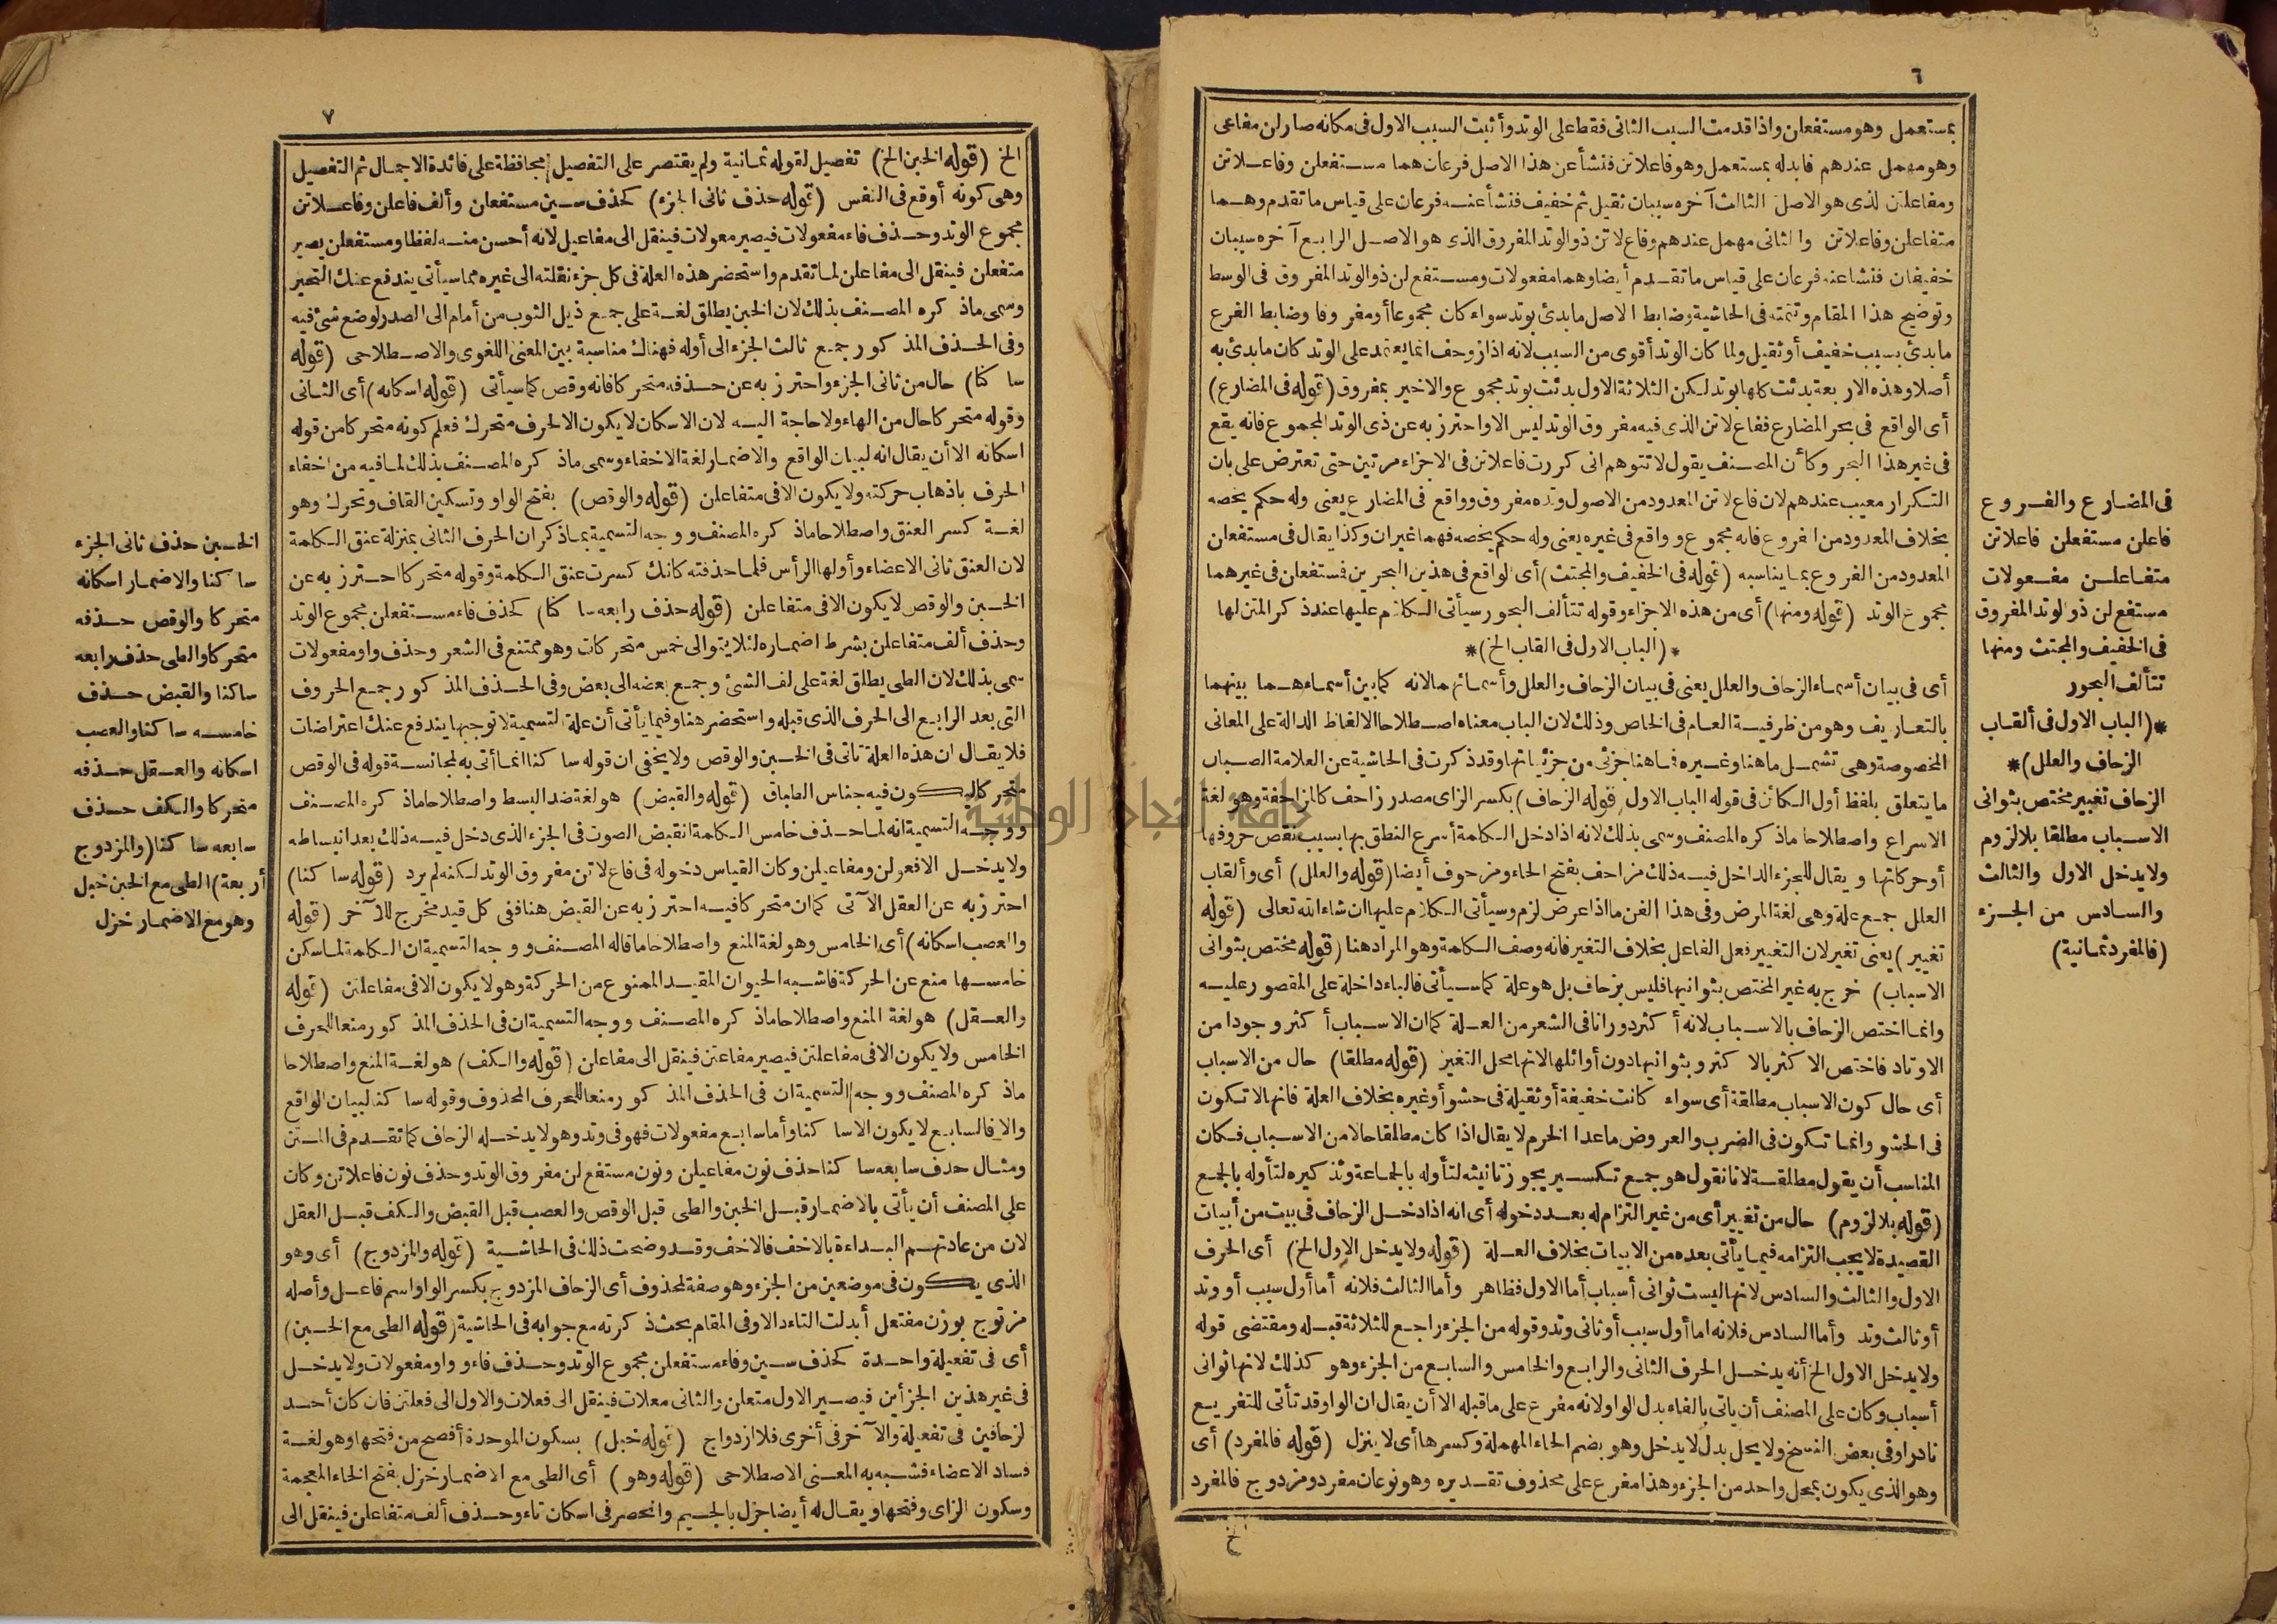 ٦
بمستعمل وهو مستفعلن واذا قدمت السبب الثانى فقط على الوتد وأثبت السبب الاول فى مكانه صار لن مفاعى
وهو مهمل عندهم فابدله بمستعمل وهو فاعلاتن فنشأ عن هذا الاصل فرعان هما مستفعلن وفاعلاتن
ومفاعلتن لذى هو الاصل الثالث آخره سببان ثقيل ثم خفيف فنشأ عنه فرعان على قياس ما تقدم وهما
متفاعلن وفاعلاتن والثانى مهمل عندهم وفاع لاتن ذو الوتد المفروق الذى هو الاصل الرابع آخره سببان
خفيفان فنشا عنه فرعان على قياس ما تقدم أيضا وهما مفعولات ومستفع لن ذو الوتد المفروق فى الوسط
وتوضيح هذا المقام وتتمته فى الحاشية وضابط الاصل ما بدئ بوتد سواء كان مجموعا أو مفروقا وضابط الفرع
ما بدئ بسبب خفيف أو ثقيل ولما كان الوتد أقوى من السبب لانه اذا زوحف انما يعتمد على الوتد كان ما بدئ به
أصلا وهذه الاربعة بدئت كلها بوتد لكن الثلاثة الاول بدئت بوتد مجموع والاخير بمفروق (قوله فى المضارع)
أى الواقع فى بحر المضارع ففاع لاتن الذى فيه مفروق الوتد ليس الا واحترز به عن ذى الوتد المجموع فانه يقع
فى غير هذا البحر وكأن المصنف يقول لا تتوهم انى كررت فاعلاتن فى الاجزاء مرتين حتى تعترض على بان
التكرار معيب عندهم لان فاع لاتن المعدود من الاصول وتده مفروق وواقع فى المضارع يعنى وله حكم يخصه
بخلاف المعدود من الفروع فانه مجموع وواقع فى غيره يعنى وله حكم يخصه فهما غيران وكذا يقال فى مستفعلن
المعدود من الفروع بما يناسبه (قوله فى الخفيف والمجتث) أى الواقع فى هذين البحرين فمستفعلن فى غيرهما
مجموع الوتد (قوله ومنها) أى من هذه الاجزاء وقوله تتألف البحور سيأتى الكلام عليها عند ذكر المتن لها
* (الباب الاول فى القاب الخ) *
أى فى بيان أسماء الزحاف والعلل يعنى فى بيان الزحاف والعلل وأسمائهما لانه كما بين أسماءهما بينهما
بالتعاريف وهو من ظرفية العام فى الخاص وذلك لان الباب معناه اصطلاحا الالفاظ الدالة على المعانى
المخصوصة وهى تشمل ما هنا وغيره فما هنا جزئى من جزئياتها وقد ذكرت فى الحاشية عن العلامة الصبان
ما يتعلق بلفظ أول الكائن فى قوله الباب الاول (قوله الزحاف) بكسر الزاى مصدر زاحف كالمزاحفة وهو لغة
الاسراع واصطلاحا ما ذكره المصنف وسمى بذلك لانه اذا دخل الكلمة أسرع النطق بها بسبب نقص حروفها
أو حركاتها ويقال للجزء الداخل فيه ذلك مزاحف بفتح الحاء ومزحوف أيضا (قوله والعلل) أى وألقاب
العلل جمع علة وهى لغة المرض وفى هذا الفن ما اذا عرض لزم وسيأتى الكلام عليها ان شاء الله تعالى (قوله
تغيير) يعنى تغير لان التغيير فعل الفاعل بخلاف التغير فانه وصف الكلمة وهو المراد هنا (قوله مختص بثوانى
الاسباب) خرج به غير المختص بثوانيها فليس بزحاف بل هو علة كما سيأتى فالباء داخلة على المقصور عليه
وانما اختص الزحاف بالاسباب لانه أكثر دورانا فى الشعر من العلة كما ان الاسباب أكثر وجودا من
الاوتاد فاختص الاكثر بالاكثر وبثوانيها دون أوائلها لانها محل التغير (قوله مطلقا) حال من الاسباب
أى حال كون الاسباب مطلقة أى سواء كانت خفيفة أو ثقيلة فى حشو أو غيره بخلاف العلة فانها لا تكون
فى الحشو وانما تكون فى الضرب والعروض ما عدا الخرم لا يقال اذا كان مطلقا حالا من الاسباب فكان
المناسب أن يقول مطلقة لانا نقول هو جمع تكسير يجوز تانيثه لتأوله بالجماعة وتذكيره لتأوله بالجمع
(قوله بلا لزوم) حال من تغيير أى من غير التزام له بعد دخوله أى انه اذا دخل الزحاف فى بيت من أبيات
القصيدة لا يجب التزامه فيما يأتى بعده من الابيات بخلاف العلة (قوله ولا يدخل الاول الخ) أى الحرف
الاول والثالث والسادس لانها ليست ثوانى أسباب أما الاول فظاهر وأما الثالث فلانه أما أول سبب أو وتد
أو ثالث وتد وأما السادس فلانه اما أول سبب أو ثانى وتد وقوله من الجزء راجع للثلاثة قبله ومقتضى قوله
ولا يدخل الاول الخ أنه يدخل الحرف الثانى والرابع والخامس والسابع من الجزء وهو كذلك لانها ثوانى
أسباب وكان على المصنف أن ياتى بالفاء بدل الواو لانه مفرع على ما قبله الا أن يقال ان الواو قد تأتى للتفريع
نادرا وفى بعض النسخ ولا يحل بدل لا يدخل وهو بضم الحاء المهملة وكسرها أى لا ينزل (قوله فالمفرد) أى
وهو الذى يكون بمحل واحد من الجزء وهذا مفرع على محذوف تقديره وهو نوعان مفرد ومزدوج فالمفرد
الخ
فى المضارع والفروع
فاعلن مستفعلن فاعلاتن
متفاعلن مفعولات
مستفع لن ذو الوتد المفروق
فى الخفيف والمجتث ومنها
تتألف البحور
*(الباب الاول فى ألقاب
الزحاف والعلل)*
الزحاف تغيير مختص بثوانى
الاسباب مطلقا بلا لزوم
ولا يدخل الاول والثالث
والسادس من الجزء
(فالمفرد ثمانية)
٧
الخ (قوله الخبن الخ) تفصيل لقوله ثمانية ولم يقتصر على التفصيل محافظة على فائدة الاجمال ثم التفصيل
وهى كونه أوقع فى النفس (قوله حذف ثانى الجزء) كحذف سين مستفعلن وألف فاعلن وفاعلاتن
مجموع الوتد وحذف فاء مفعولات فيصير معولات فينقل الى مفاعيل لانه أحسن منه لفظا ومستفعلن يصير
متفعلن فينقل الى مفاعلن لما تقدم واستحضر هذه العلة فى كل جزء نقلته الى غيره مما سيأتى يندفع عنك التحير
وسمى ما ذكره المصنف بذلك لان الخبن يطلق لغة على جمع ذيل الثوب من أمام الى الصدر لوضع شئ فيه
وفى الحذف المذكور جمع ثالث الجزء الى أوله فهناك مناسبة بين المعنى اللغوى والاصطلاحى (قوله
ساكنا) حال من ثانى الجزء واحترز به عن حذفه متحركا فانه وقص كما سيأتى (قوله اسكانه) أى الثانى
وقوله متحركا حال من الهاء ولا حاجة اليه لان الاسكان لا يكون الا لحرف متحرك فعلم كونه متحركا من قوله
اسكانه الا أن يقال انه لبيان الواقع والاضمار لغة الاخفاء وسمى ما ذكره المصنف بذلك لما فيه من اخفاء
الحرف باذهاب حركته ولا يكون الا فى متفاعلن (قوله والوقص) بفتح الواو وتسكين القاف وتحرك وهو
لغة كسر العنق واصطلاحا ما ذكره المصنف ووجه التسمية بما ذكر ان الحرف الثانى بمنزلة عنق الكلمة
لان العنق ثانى الاعضاء وأولها الرأس فلما حذفته كانك كسرت عنق الكلمة وقوله متحركا احترز به عن
الخبن والوقص لا يكون الا فى متفاعلن (قوله حذف رابعه ساكنا) كحذف فاء مستفعلن مجموع الوتد
وحذف ألف متفاعلن بشرط اضماره لئلا يتوالى خمس متحركات وهو ممتنع فى الشعر وحذف واو مفعولات
سمى بذلك لان الطى يطلق لغة على لف الشئ وجمع بعضه الى بعض وفى الحذف المذكور جمع الحروف
التى بعد الرابع الى الحرف الذى قبله واستحضر هنا وفيما يأتى أن علة التسمية لا توجبها يندفع عنك اعتراضات
فلا يقال ان هذه العلة تاتى فى الخبن والوقص ولا يخفى ان قوله ساكنا انما أتى به لمجانسة قوله فى الوقص
متحركا ليكون فيه جناس الطباق (قوله والقبض) هو لغة ضد البسط واصطلاحا ما ذكره المصنف
ووجه التسمية انه لما حذف خامس الكلمة انقبض الصوت فى الجزء الذى دخل فيه ذلك بعد انبساطه
ولا يدخل الا فعولن ومفاعيلن وكان القياس دخوله فى فاع لاتن مفروق الوتد لكنه لم يرد (قوله ساكنا)
احترز به عن العقل الآتى كما ان متحركا فيه احترز به عن القبض هنا ففى كل قيد مخرج للآخر (قوله
والعصب اسكانه) أى الخامس وهو لغة المنع واصطلاحا ما قاله المصنف ووجه التسمية ان الكلمة لما سكن
خامسها منع عن الحركة فاشبه الحيوان المقيد الممنوع من الحركة وهو لا يكون الا فى مفاعلتن (قوله
والعقل) هو لغة المنع واصطلاحا ما ذكره المصنف ووجه التسمية ان فى الحذف المذكور منعا للحرف
الخامس ولا يكون الا فى مفاعلتن فيصير مفاعتن فينقل الى مفاعلن (قوله والكف) هو لغة المنع واصطلاحا
ما ذكره المصنف ووجه التسمية ان فى الحذف المذكور منعا للحرف المحذوف وقوله ساكنا لبيان الواقع
والا فالسابع لا يكون الا ساكنا وأما سابع مفعولات فهو فى وتد وهو لا يدخله الزحاف كما تقدم فى المتن
ومثال حذف سابعه ساكنا حذف نون مفاعيلن ونون مستفع لن مفروق الوتد وحذف نون فاعلاتن وكان
على المصنف أن يأتى بالاضمار قبل الخبن والطى قبل الوقص والعصب قبل القبض والكف قبل العقل
لان من عادتهم البداءة بالاخف فالاخف وقد وضحت ذلك فى الحاشية (قوله والمزدوج) أى وهو
الذى يكون فى موضعين من الجزء وهو صفة لمحذوف أى الزحاف المزدوج بكسر الواو اسم فاعل وأصله
مزتوج بوزن مفتعل أبدلت التاء دالا وفى المقام بحث ذكرته مع جوابه فى الحاشية (قوله الطى مع الخبن)
أى فى تفعيلة واحدة كحذف سين وفاء مستفعلن مجموع الوتد وحذف فاء وواو مفعولات ولا يدخل
فى غير هذين الجزأين فيصير الاول متعلن والثانى معلات فينقل الى فعلات والاول الى فعلتن فان كان أحد
لزحافين فى تفعيلة والآخر فى أخرى فلا ازدواج (قوله خبل) بسكون الموحدة أفصح من فتحها وهو لغة
فساد الاعضاء فشبه به المعنى الاصطلاحى (قوله وهو) أى الطى مع الاضمار خزل بفتح الخاء المعجمة
وسكون الزاى وفتحها ويقال له أيضا جزل بالجيم وانحصر فى اسكان تاء وحذف ألف متفاعلن فينقل الى
الخبن حذف ثانى الجزء
ساكنا والاضمار اسكانه
متحركا والوقص حذفه
متحركا والطى حذف رابعه
ساكنا والقبض حذف
خامسه ساكنا والعصب
اسكانه والعقل حذفه
متحركا والكف حذف
سابعه ساكنا (والمزدوج
أربعة) الطى مع الخبن خبل
وهو مع الاضمار خزل
جامعة النجاح الوطنية